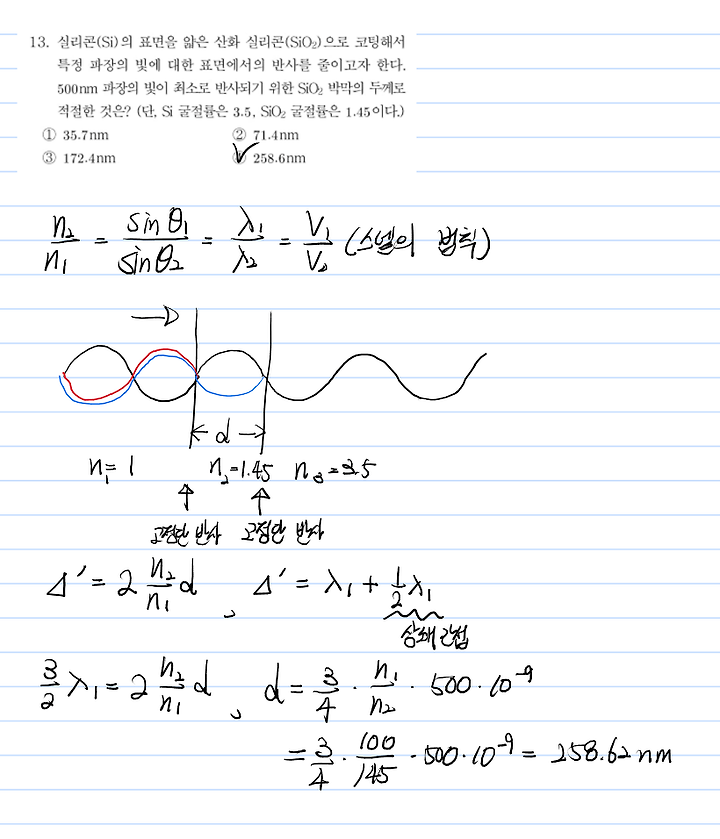 13. 실리콘(Si)의 표면을 얇은 산화 실리콘(SiO₂)으로 코팅해서
특정 파장의 빛에 대한 표면에서의 반사를 줄이고자 한다.
500nm 파장의 빛이 최소로 반사되기 위한 SiO₂ 박막의 두께로
적절한 것은? (단, Si 굴절률은 3.5, SiO₂ 굴절률은 1.45이다.)
① 35.7nm ② 71.4nm
③ 172.4nm ④ 258.6nm
n₂/n₁ = sinθ₁/sinθ₂ = λ₁/λ₂ = V₁/V₂ (스넬의 법칙)
d
n₁ = 1 n₂=1.45 n₃=3.5
고정단 반사 고정단 반사
Δ' = 2 n₂/n₁ d , Δ' = λ₁ + 1/2 λ₁
상쇄간섭
3/2 λ₁ = 2 n₂/n₁ d , d = 3/4 · n₁/n₂ · 500 · 10⁻⁹
= 3/4 · 100/145 · 500 · 10⁻⁹ = 258.62 nm